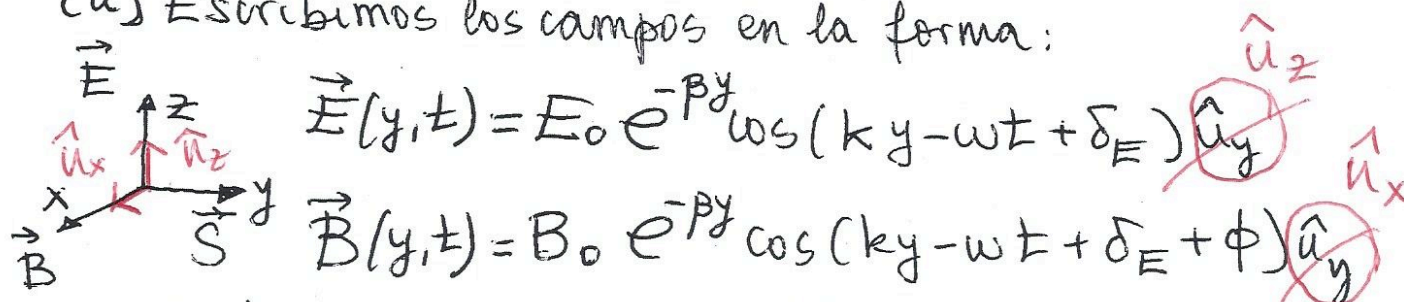 (a) Escribimos los campos en la forma:
E⃗
z
û_x û_z
x y
B⃗ S⃗
E⃗(y,t) = E₀ e^{-βy} cos(ky-ωt+δ_E) û_y û_z
B⃗(y,t) = B₀ e^{-βy} cos(ky-ωt+δ_E+ϕ) û_y û_x